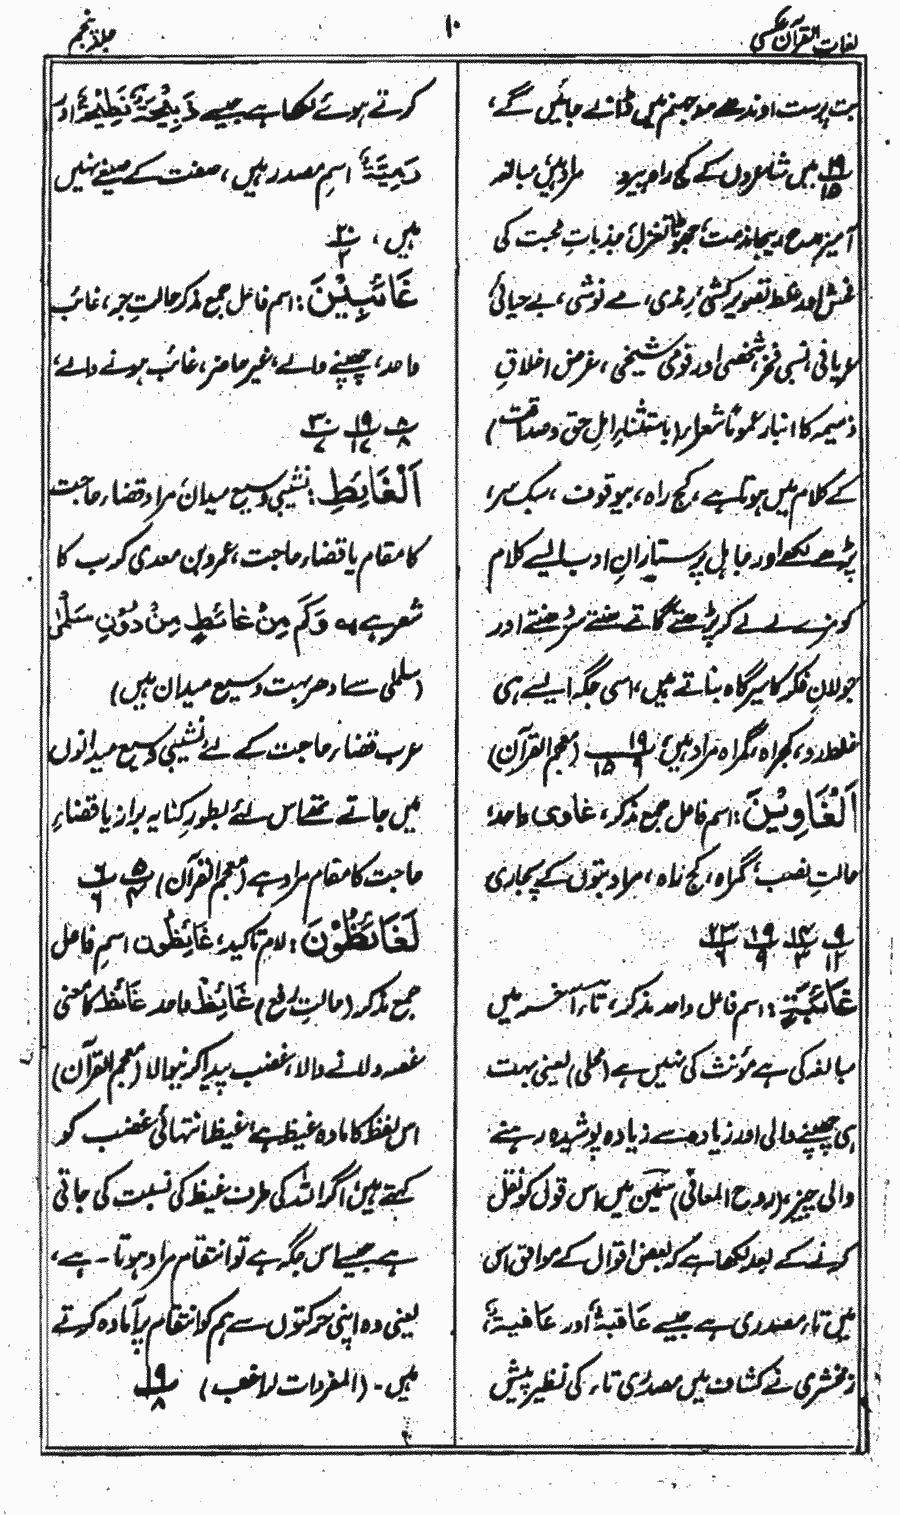 لغات القرآن عکسی
۱۰
جلد پنجم
بت پرست اوندھے موجہنم میں ڈالے جائیں گے،
۱۹/۱۵ میں شاعروں کے کج راہ پیرو مراد ہیں، مبالغہ
آمیز مدح، بیجا مذمت، جھوٹا تغزل، جذباتِ محبت کی
فحش اور غلط تصویر کشی، رندی، مے نوشی، بے حیائی،
عریانی، نسبی فخر، شخصی اور قومی شیخی، غرض اخلاقِ
ذمیمہ کا انبار عموماً شعراء (باستثناءِ اہلِ حق و صداقت)
کے کلام میں ہوتا ہے، کج راہ، بیوقوف، سبک سر،
پڑھے لکھے اور جاہل پرستارانِ ادب ایسے کلام
کو مزے لے لے کر پڑھتے گاتے سنتے سر دھنتے اور
جولانِ فکر کا سیرگاہ بناتے ہیں، اسی جگہ ایسے ہی
غلط رو، کجراہ، گمراہ مراد ہیں، ۱۹/۹ ۱۵ (معجم القرآن)
اَلْغَاوِیْنَ : اسم فاعل جمع مذکر، غاوی واحد،
حالتِ نصب، گمراہ، کج راہ، مراد بتوں کے پجاری
۹/۱۲ ۱۴/۳ ۱۹/۹ ۲۳/۶
غَائِبَۃٍ : اسم فاعل واحد مذکر، تاء آخر میں
مبالغہ کی ہے مؤنث کی نہیں ہے (محلی) یعنی بہت
ہی چھپنے والی اور زیادہ سے زیادہ پوشیدہ رہنے
والی چیز، (روح المعانی) سمین میں اس قول کو نقل
کرنے کے بعد لکھا ہے کہ بعض اقوال کے موافق اس
میں تاء مصدری ہے جیسے عَاقِبَۃٌ اور عَافِیَۃٌ،
زمخشری نے کشاف میں مصدری تاء کی نظیر پیش
کرتے ہوئے لکھا ہے جیسے ذَبِیْحَۃٌ نَطِیْحَۃٌ اور
رَمِیَّۃٌ اسمِ مصدر ہیں، صفت کے صیغے نہیں
ہیں، ۲۰/۲
غَائِبِیْنَ : اسم فاعل جمع مذکر حالتِ جر، غائب
واحد، چھپنے والے، غیر حاضر، غائب ہونے والے،
۸/۸ ۱۹/۱۷ ۳۰/۷
اَلْغَائِطِ : نشیبی وسیع میدان، مراد قضاءِ حاجت
کا مقام یا قضاءِ حاجت، عمرو بن معدی کرب کا
شعر ہے ؎ وَکَمْ مِنْ غَائِطٍ مِنْ دُوْنِ سَلْمٰی
(سلمٰی سے ادھر بہت وسیع میدان ہیں)
عرب قضاءِ حاجت کے لئے نشیبی وسیع میدانوں
میں جاتے تھے اس لئے بطورِ کنایہ براز یا قضاءِ
حاجت کا مقام مراد ہے (معجم القرآن) ۵/۴ ۶/۶
لَغَائِظُوْنَ : لام تاکید، غَائِظُوْن اسمِ فاعل
جمع مذکر (حالتِ رفع) غَائِظٌ واحد غَائِظٌ کا معنی
غصہ دلانے والا، غضب پیدا کرنیوالا (معجم القرآن)
اس لفظ کا مادہ غیظ ہے، غیظ انتہائی غضب کو
کہتے ہیں، اگر اللہ کی طرف غیظ کی نسبت کی جاتی
ہے جیسے اس جگہ ہے تو انتقام مراد ہوتا ہے،
یعنی وہ اپنی حرکتوں سے ہم کو انتقام پر آمادہ کرتے
ہیں۔ (المفردات لراغب) ۱۹/۸